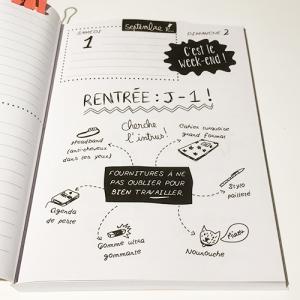 septembre
SAMEDI
1
DIMANCHE 2
C'est le
WEEK-END!
RENTRÉE: J-1!
Cherche
l'intrus!
Headband
(anti-cheveux
dans les yeux)
Cahier turquoise
grand format
FOURNITURES À NE
PAS OUBLIER POUR
BIEN TRAVAILLER
Stylo
pailleté
Agenda
de poste
Gomme ultra
gommante
Nounouche